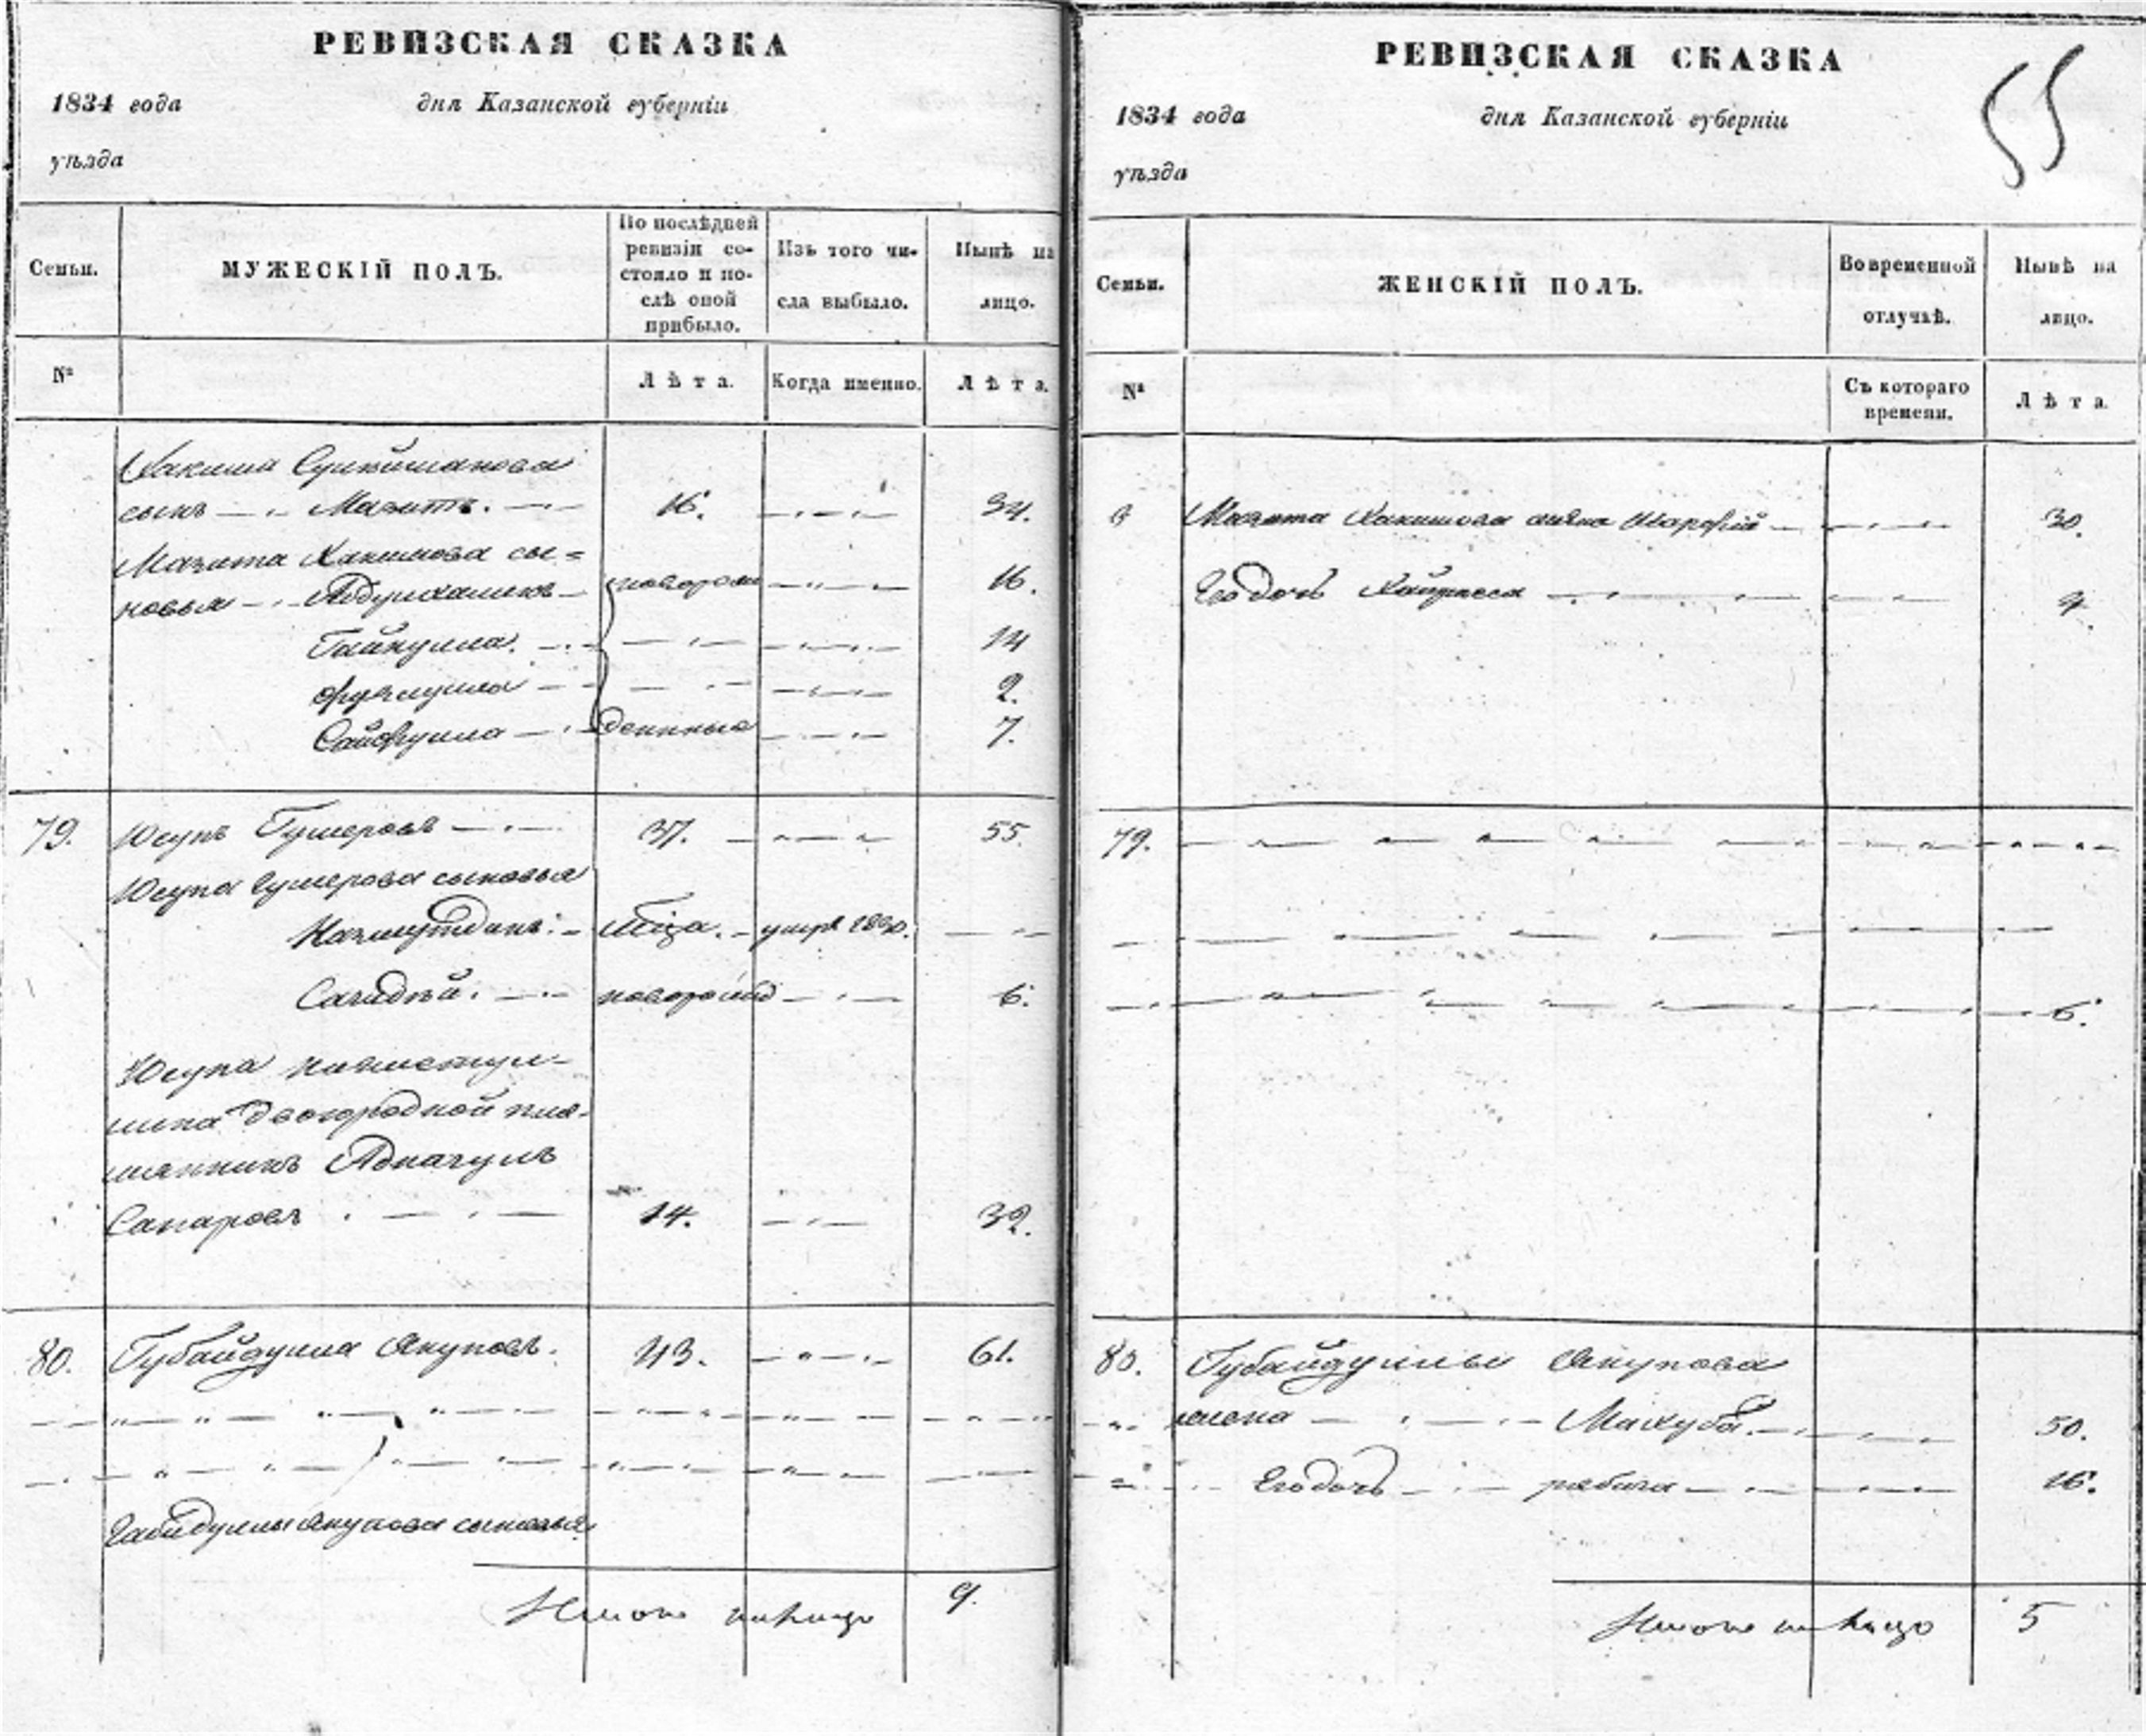 РЕВИЗСКАЯ СКАЗКА
1834 года дня Казанской губерніи
уѣзда
Семьи.
МУЖЕСКІЙ ПОЛЪ.
По послѣдней ревизіи со-
стояло и по-
слѣ оной
прибыло.
Изъ того чи-
сла выбыло.
Нынѣ на
лицо.
№
Лѣта.
Когда именно.
Лѣта.
Хакима Сулейманова
сынъ Мазитъ. 16. 34.
Мазита Хакимова сы=
новья Абдулхаликъ новорож 16.
Гайнулла. 14
Фузлулла 2.
Сайфулла денныя 7.
79. Юсупъ Гумеровъ 37. 55.
Юсупа Гумерова сыновья
умре
6.
Юсупа
двоюродной пле-
мянникъ
Сапаровъ 14. 32.
80. Губайдулла Якуповъ. 43. 61.
Якупова сыновья
Итого на лицо 9.
РЕВИЗСКАЯ СКАЗКА
55
1834 года дня Казанской губерніи
уѣзда
Семьи.
ЖЕНСКІЙ ПОЛЪ.
Во временной
отлучкѣ.
Нынѣ на
лицо.
№
Съ котораго
времени.
Лѣта.
Мазита Хакимова жена 30.
Его дочь
79.
6.
80. Губайдуллы Якупова
жена Махуба. 50.
Его дочь 16.
Итого на лицо 5